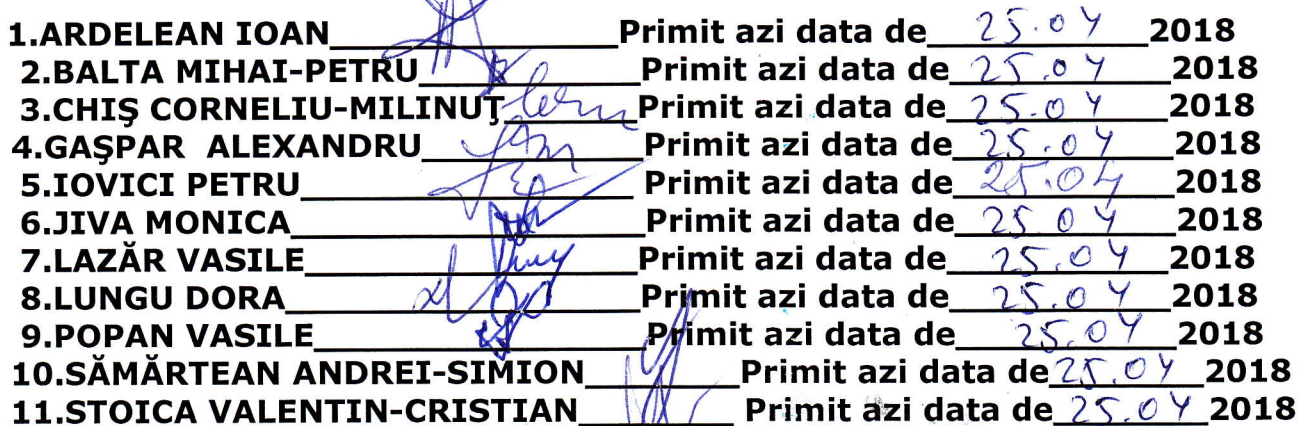 1.ARDELEAN IOAN____________________Primit azi data de 25.04 2018
2.BALTA MIHAI-PETRU________________Primit azi data de 25.04 2018
3.CHIŞ CORNELIU-MILINUŢ__________Primit azi data de 25.04 2018
4.GAŞPAR ALEXANDRU_______________Primit azi data de 25.04 2018
5.IOVICI PETRU________________________Primit azi data de 25.04 2018
6.JIVA MONICA________________________Primit azi data de 25.04 2018
7.LAZĂR VASILE_______________________Primit azi data de 25.04 2018
8.LUNGU DORA________________________Primit azi data de 25.04 2018
9.POPAN VASILE_______________________Primit azi data de 25.04 2018
10.SĂMĂRTEAN ANDREI-SIMION__________Primit azi data de 25.04 2018
11.STOICA VALENTIN-CRISTIAN__________Primit azi data de 25.04 2018